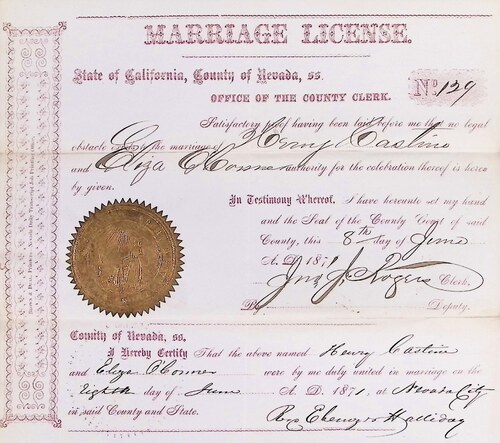 MARRIAGE LICENSE.
State of California, County of Nevada, ss.
No. 129
OFFICE OF THE COUNTY CLERK.
Satisfactory proof having been laid before me that no legal
obstacle to the marriage of Henry Castine
and Eliza O'Conner authority for the celebration thereof is hereby
given.
In Testimony Whereof, I have hereunto set my hand
and the Seal of the County Court of said
County, this 8th day of June
A. D. 1871
Jno. J. Rogers Clerk.
Deputy.
County of Nevada, ss.
I Hereby Certify That the above named Henry Castine
and Eliza O'Conner were by me duly united in marriage on the
Eighth day of June A. D. 1871, at Nevada City
in said County and State.
Rev Ebenezer Halliday